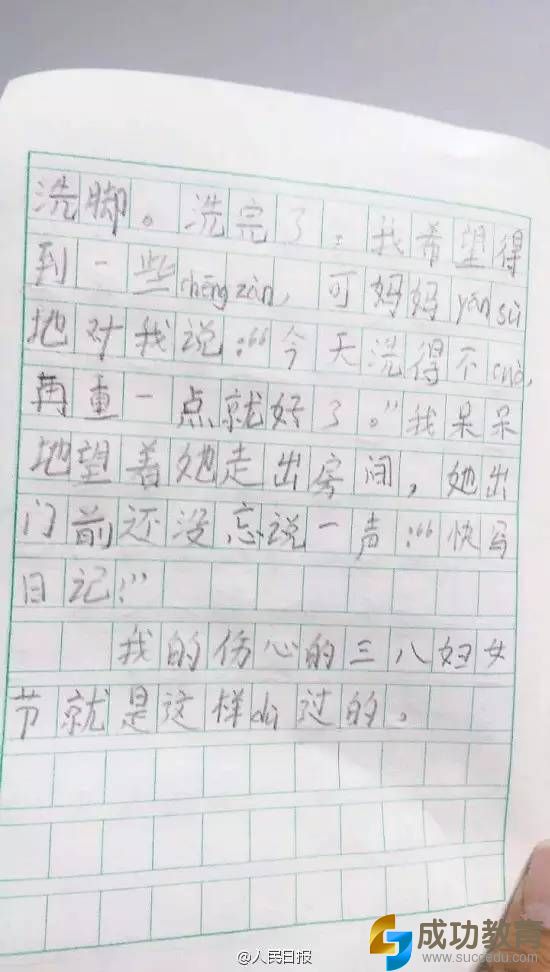 洗脚。洗完了，我希望得
到一些chēng zàn，可妈妈yán sù
地对我说：“今天洗得不cuò，
再重一点就好了。”我呆呆
地望着她走出房间，她出
门前还没忘说一声：“快写
日记！”
我的伤心的三八妇女
节就是这样dù过的。
@人民日报
成功教育
www.succedu.com